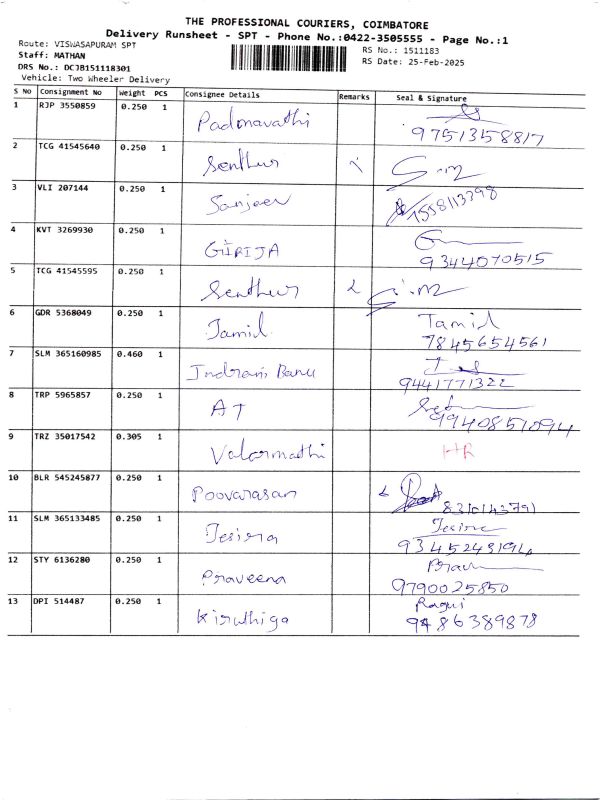 THE PROFESSIONAL COURIERS, COIMBATORE
Delivery Runsheet - SPT - Phone No.:0422-3505555 - Page No.:1
Route: VISWASAPURAM SPT
RS No.: 1511183
Staff: MATHAN
RS Date: 25-Feb-2025
DRS No.: DCJB151118301
Vehicle: Two Wheeler Delivery
S No Consignment No Weight PCS Consignee Details Remarks Seal & Signature
1 RJP 3550859 0.250 1 Padmavathi
9751358817
2 TCG 41545640 0.250 1 Senthur
3 VLI 207144 0.250 1 Sanjeev 1558113398
4 KVT 3269930 0.250 1 GIRIJA
9344070515
5 TCG 41545595 0.250 1 Senthur
6 GDR 5368049 0.250 1 Tamil Tamil
7845654561
7 SLM 365160985 0.460 1 Indrani Banu
9441771322
8 TRP 5965857 0.250 1 AT
9940851094
9 TRZ 35017542 0.305 1 Valarmathi HR
10 BLR 545245877 0.250 1 Poovarasan
8310143791
11 SLM 365133485 0.250 1 Jesira
9345243194
12 STY 6136280 0.250 1 Praveena
9790025850
13 DPI 514487 0.250 1 Kiruthiga Ragui
9486389878